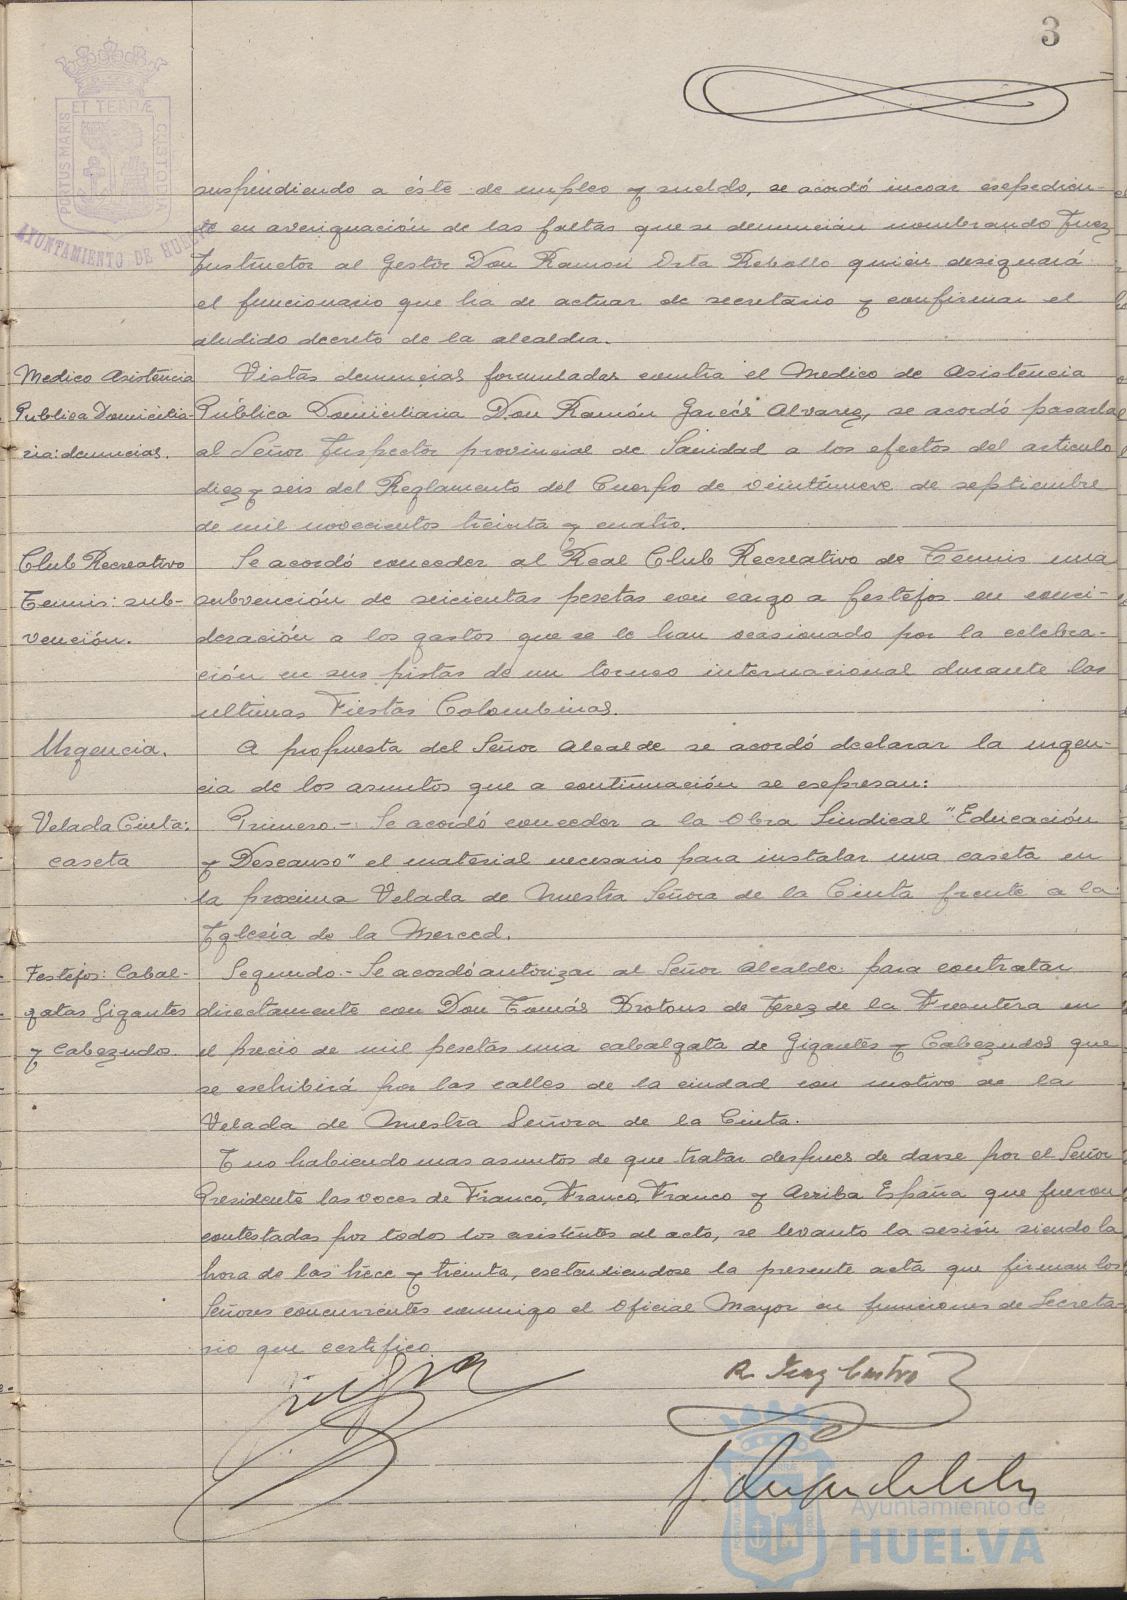 3
PORTUS MARIS ET TERRÆ CUSTODIA
AYUNTAMIENTO DE HUELVA
suspendiendo a éste de empleo y sueldo, se acordó incoar esepedien-
te en averiguación de las faltas que se denuncian nombrando Juez
Instructor al Gestor Don Ramon Orta Rebollo quien designará
el funcionario que ha de actuar de secretario y confirmar el
aludido decreto de la alcaldia.
Medico Asistencia
Publica Domicilia-
ria: denuncias.
Vistas denuncias formuladas contra el Medico de Asistencia
Pública Domiciliaria Don Ramón Garcés Alvarez, se acordó pasarlas
al Señor Inspector provincial de Sanidad a los efectos del articulo
diez y seis del Reglamento del Cuerpo de veintinueve de septiembre
de mil novecientos treinta y cuatro.
Club Recreativo
Tennis: sub-
vención.
Se acordó conceder al Real Club Recreativo de Tennis una
subvención de seicientas pesetas con cargo a festejos en consi-
deración a los gastos que se le han ocasionado por la celebra-
ción en sus pistas de un torneo internacional durante las
ultimas Fiestas Colombinas.
Urgencia.
A propuesta del Señor Alcalde se acordó declarar la urgen-
cia de los asuntos que a continuación se esepresan:
Velada Cinta:
caseta
Primero.- Se acordó conceder a la Obra Sindical "Educación
y Descanso" el material necesario para instalar una caseta en
la proxima Velada de Nuestra Señora de la Cinta frente a la
Iglesia de la Merced.
Festejos: Cabal-
gatas Gigantes
y Cabezudos.
Segundo.- Se acordó autorizar al Señor Alcalde para contratar
directamente con Don Tomás Brotons de Jerez de la Frontera en
el precio de mil pesetas una cabalgata de Gigantes y Cabezudos que
se exhibirá por las calles de la ciudad con motivo de la
Velada de Nuestra Señora de la Cinta.
Y no habiendo mas asuntos de que tratar despues de darse por el Señor
Presidente las voces de Franco, Franco, Franco y Arriba España que fueron
contestadas por todos los asistentes al acto, se levanto la sesión siendo la
hora de las trece y treinta, esetendiendose la presente acta que firman los
Señores concurrentes conmigo el Oficial Mayor en funciones de Secreta-
rio que certifico.
Ayuntamiento de
HUELVA